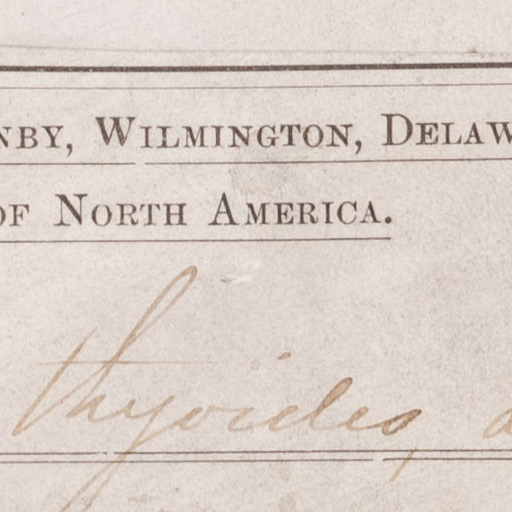 NBY, WILMINGTON, DELAW
OF NORTH AMERICA.
thyoides,